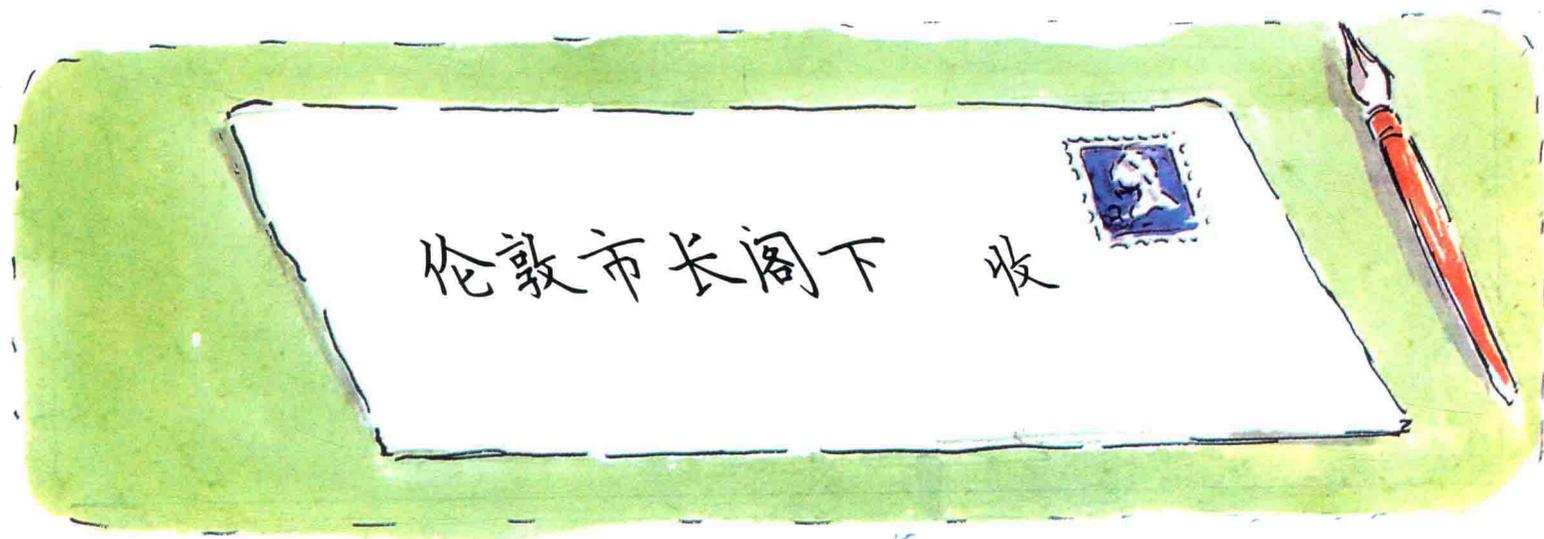 伦敦市长阁下 收